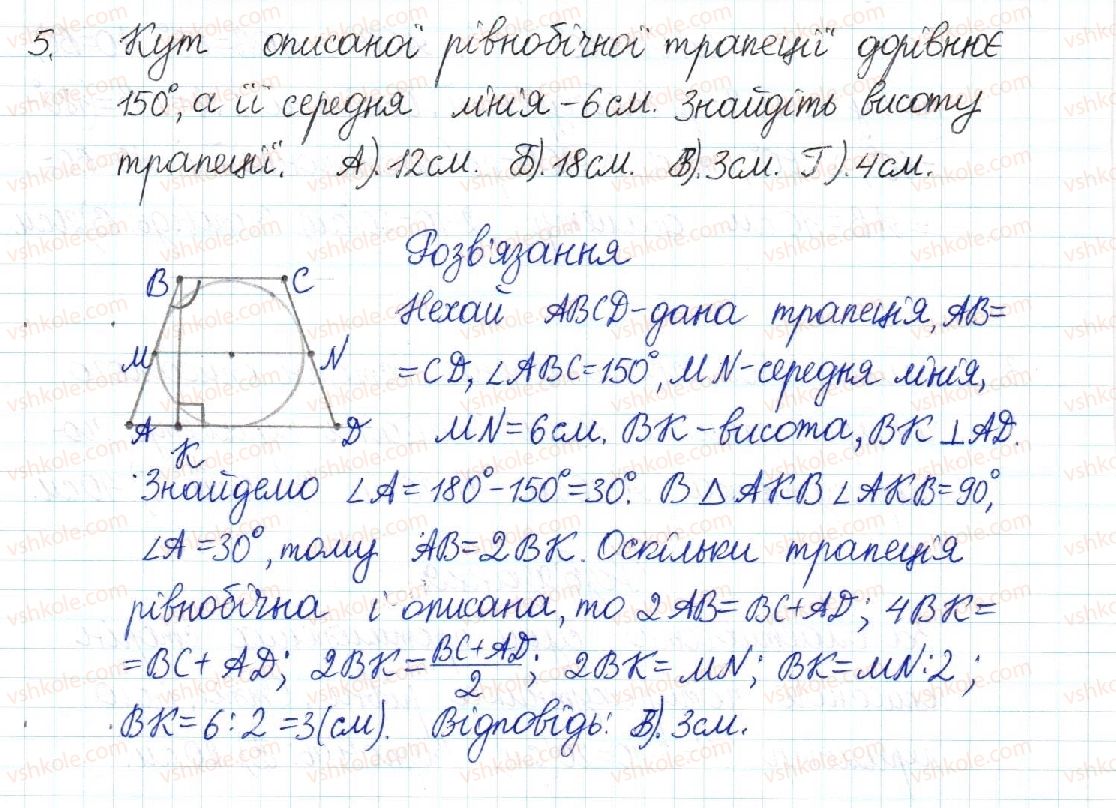 5. Кут описаної рівнобічної трапеції дорівнює
150°, а її середня лінія - 6 см. Знайдіть висоту
трапеції. А). 12 см. Б). 18 см. В). 3 см. Г). 4 см.
Розв'язання
B C
Нехай ABCD - дана трапеція, AB=
M N
=CD, ∠ABC=150°, MN - середня лінія,
A K D
MN=6 см. BK - висота, BK⊥AD.
Знайдемо ∠A=180°-150°=30°. В △AKB ∠AKB=90°,
∠A=30°, тому AB=2BK. Оскільки трапеція
рівнобічна і описана, то 2AB=BC+AD; 4BK=
=BC+AD; 2BK=(BC+AD)/2; 2BK=MN; BK=MN:2;
BK=6:2=3(см). Відповідь: В). 3 см.
vshkole.com